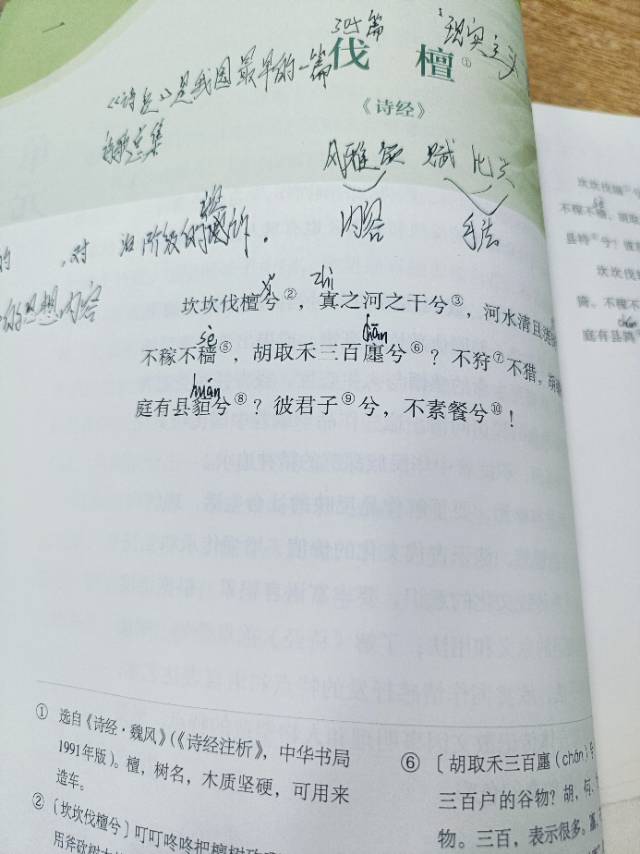 305篇
现实主义
伐檀①
《诗经》是我国最早的一篇
诗歌总集
《诗经》
风雅颂 赋比兴
内容 手法
的 ,对 治阶级的
的思想内容
xī
zhì
坎坎伐檀兮②,寘之河之干兮③,河水清且涟
sè
chán
不稼不穑⑤,胡取禾三百廛兮⑥?不狩⑦不猎,胡
huán
庭有县貆兮⑧?彼君子⑨兮,不素餐兮⑩!
① 选自《诗经·魏风》(《诗经注析》,中华书局
1991年版)。檀,树名,木质坚硬,可用来
造车。
②〔坎坎伐檀兮〕叮叮咚咚把檀树砍
用斧砍树
⑥〔胡取禾三百廛(chán)
三百户的谷物?胡,何、
物。三百,表示很多。廛,
坎坎伐
不稼不穑,胡取
县特兮?彼
坎坎伐
漘,不稼不
庭有县鹑